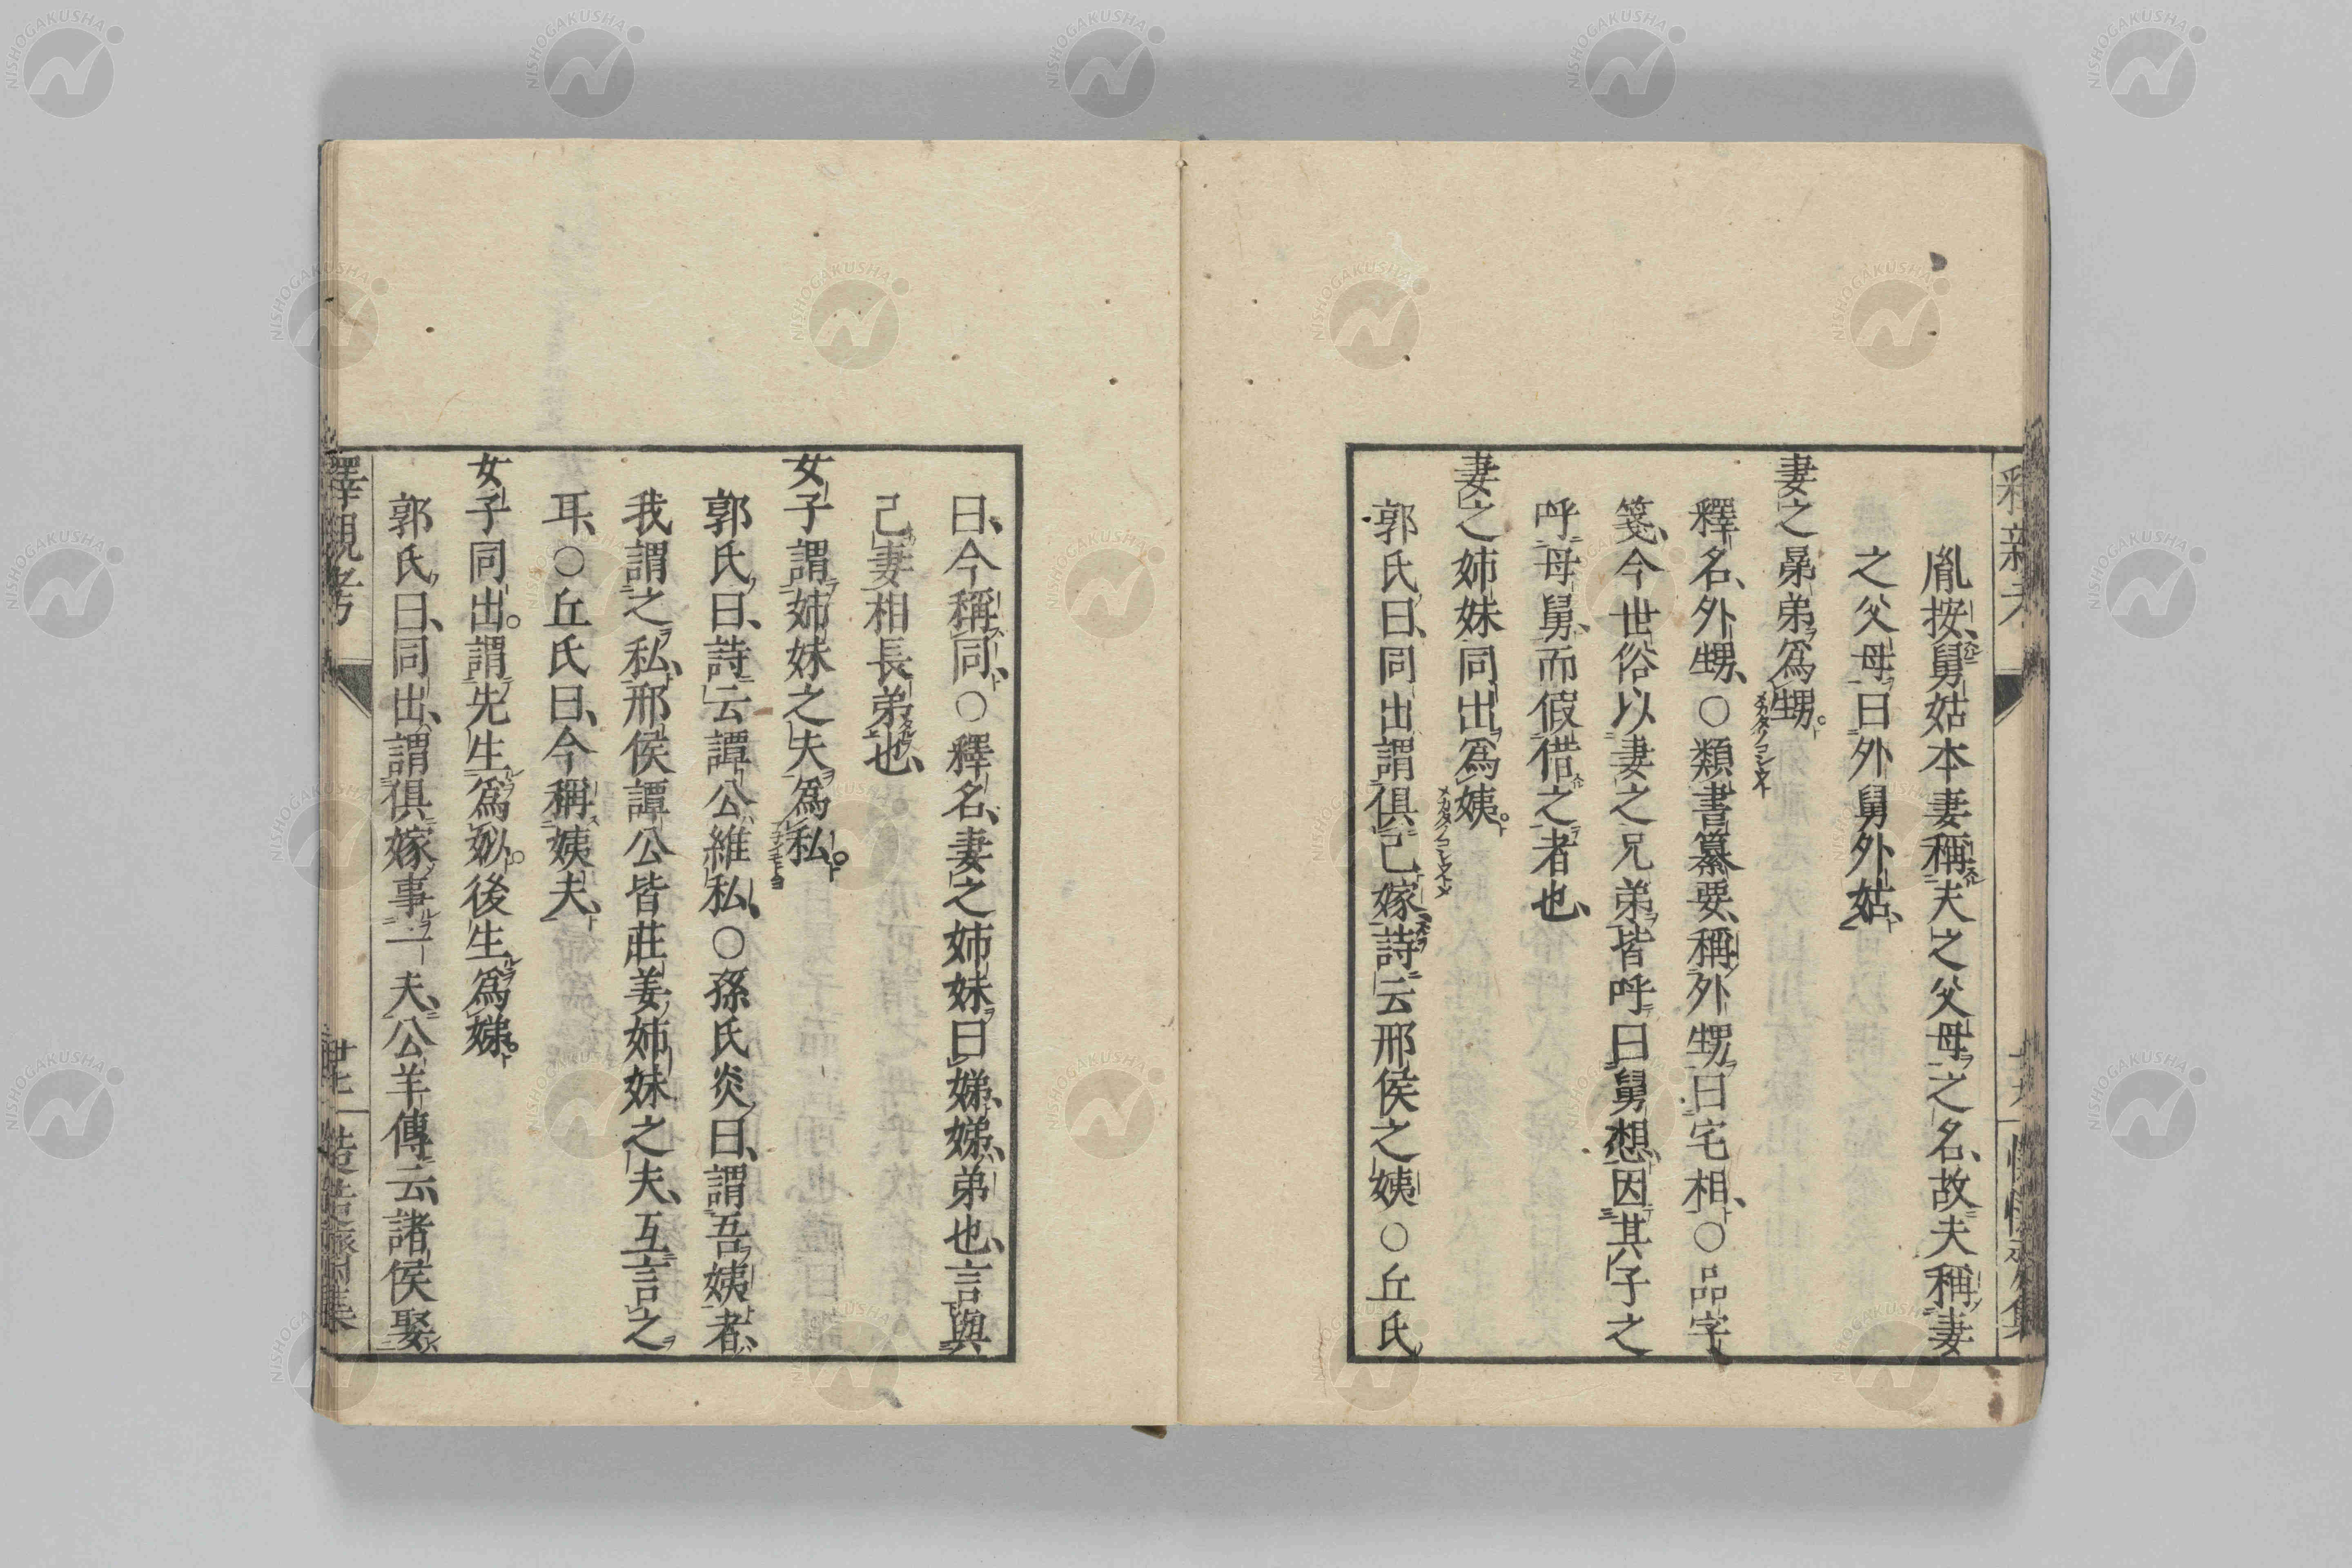 胤按、舅姑本妻稱夫之父母之名、故夫稱妻
之父母曰外舅外姑、
妻之晜弟爲甥。
釋名、外甥、○類書纂要、稱外甥曰宅相、○品字
箋、今世俗以妻之兄弟皆呼曰舅、想因其子之
呼母舅、而假借之者也、
妻之姉妹同出爲姨。
郭氏曰、同出謂俱已嫁、詩云邢侯之姨○丘氏
曰、今稱同、○釋名、妻之姉妹曰娣、娣、弟也、言與
己妻相長弟也、
女子謂姉妹之夫爲私。
郭氏曰、詩云譚公維私、○孫氏炎曰、謂吾姨者、
我謂之私、邢侯譚公皆莊姜姉妹之夫、互言之
耳、○丘氏曰、今稱姨夫、
女子同出。謂先生爲姒。後生爲娣。
郭氏曰、同出、謂俱嫁事一夫、公羊傳云、諸侯娶
釋親考
NISHOGAKUSHA